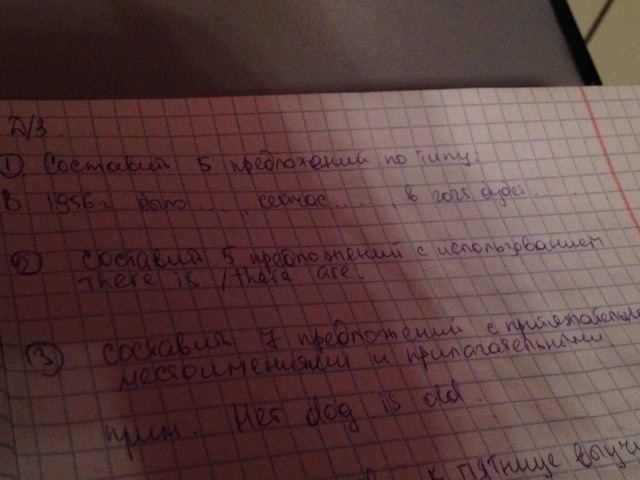 Д/З.
① Составить 5 предложений по типу:
В 1956 г было ...., сейчас ....., в будет ....
② Составить 5 предложений с использованием
There is / there are.
③ Составить 7 предложений с притяжательными
местоимениями и прилагательными
прим. Her dog is old.
к пятнице выучи